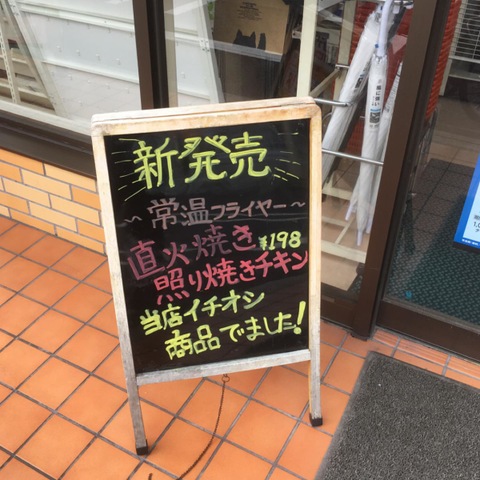 新発売
～常温フライヤー～
直火焼き ¥198
照り焼きチキン
当店イチオシ
商品でました！